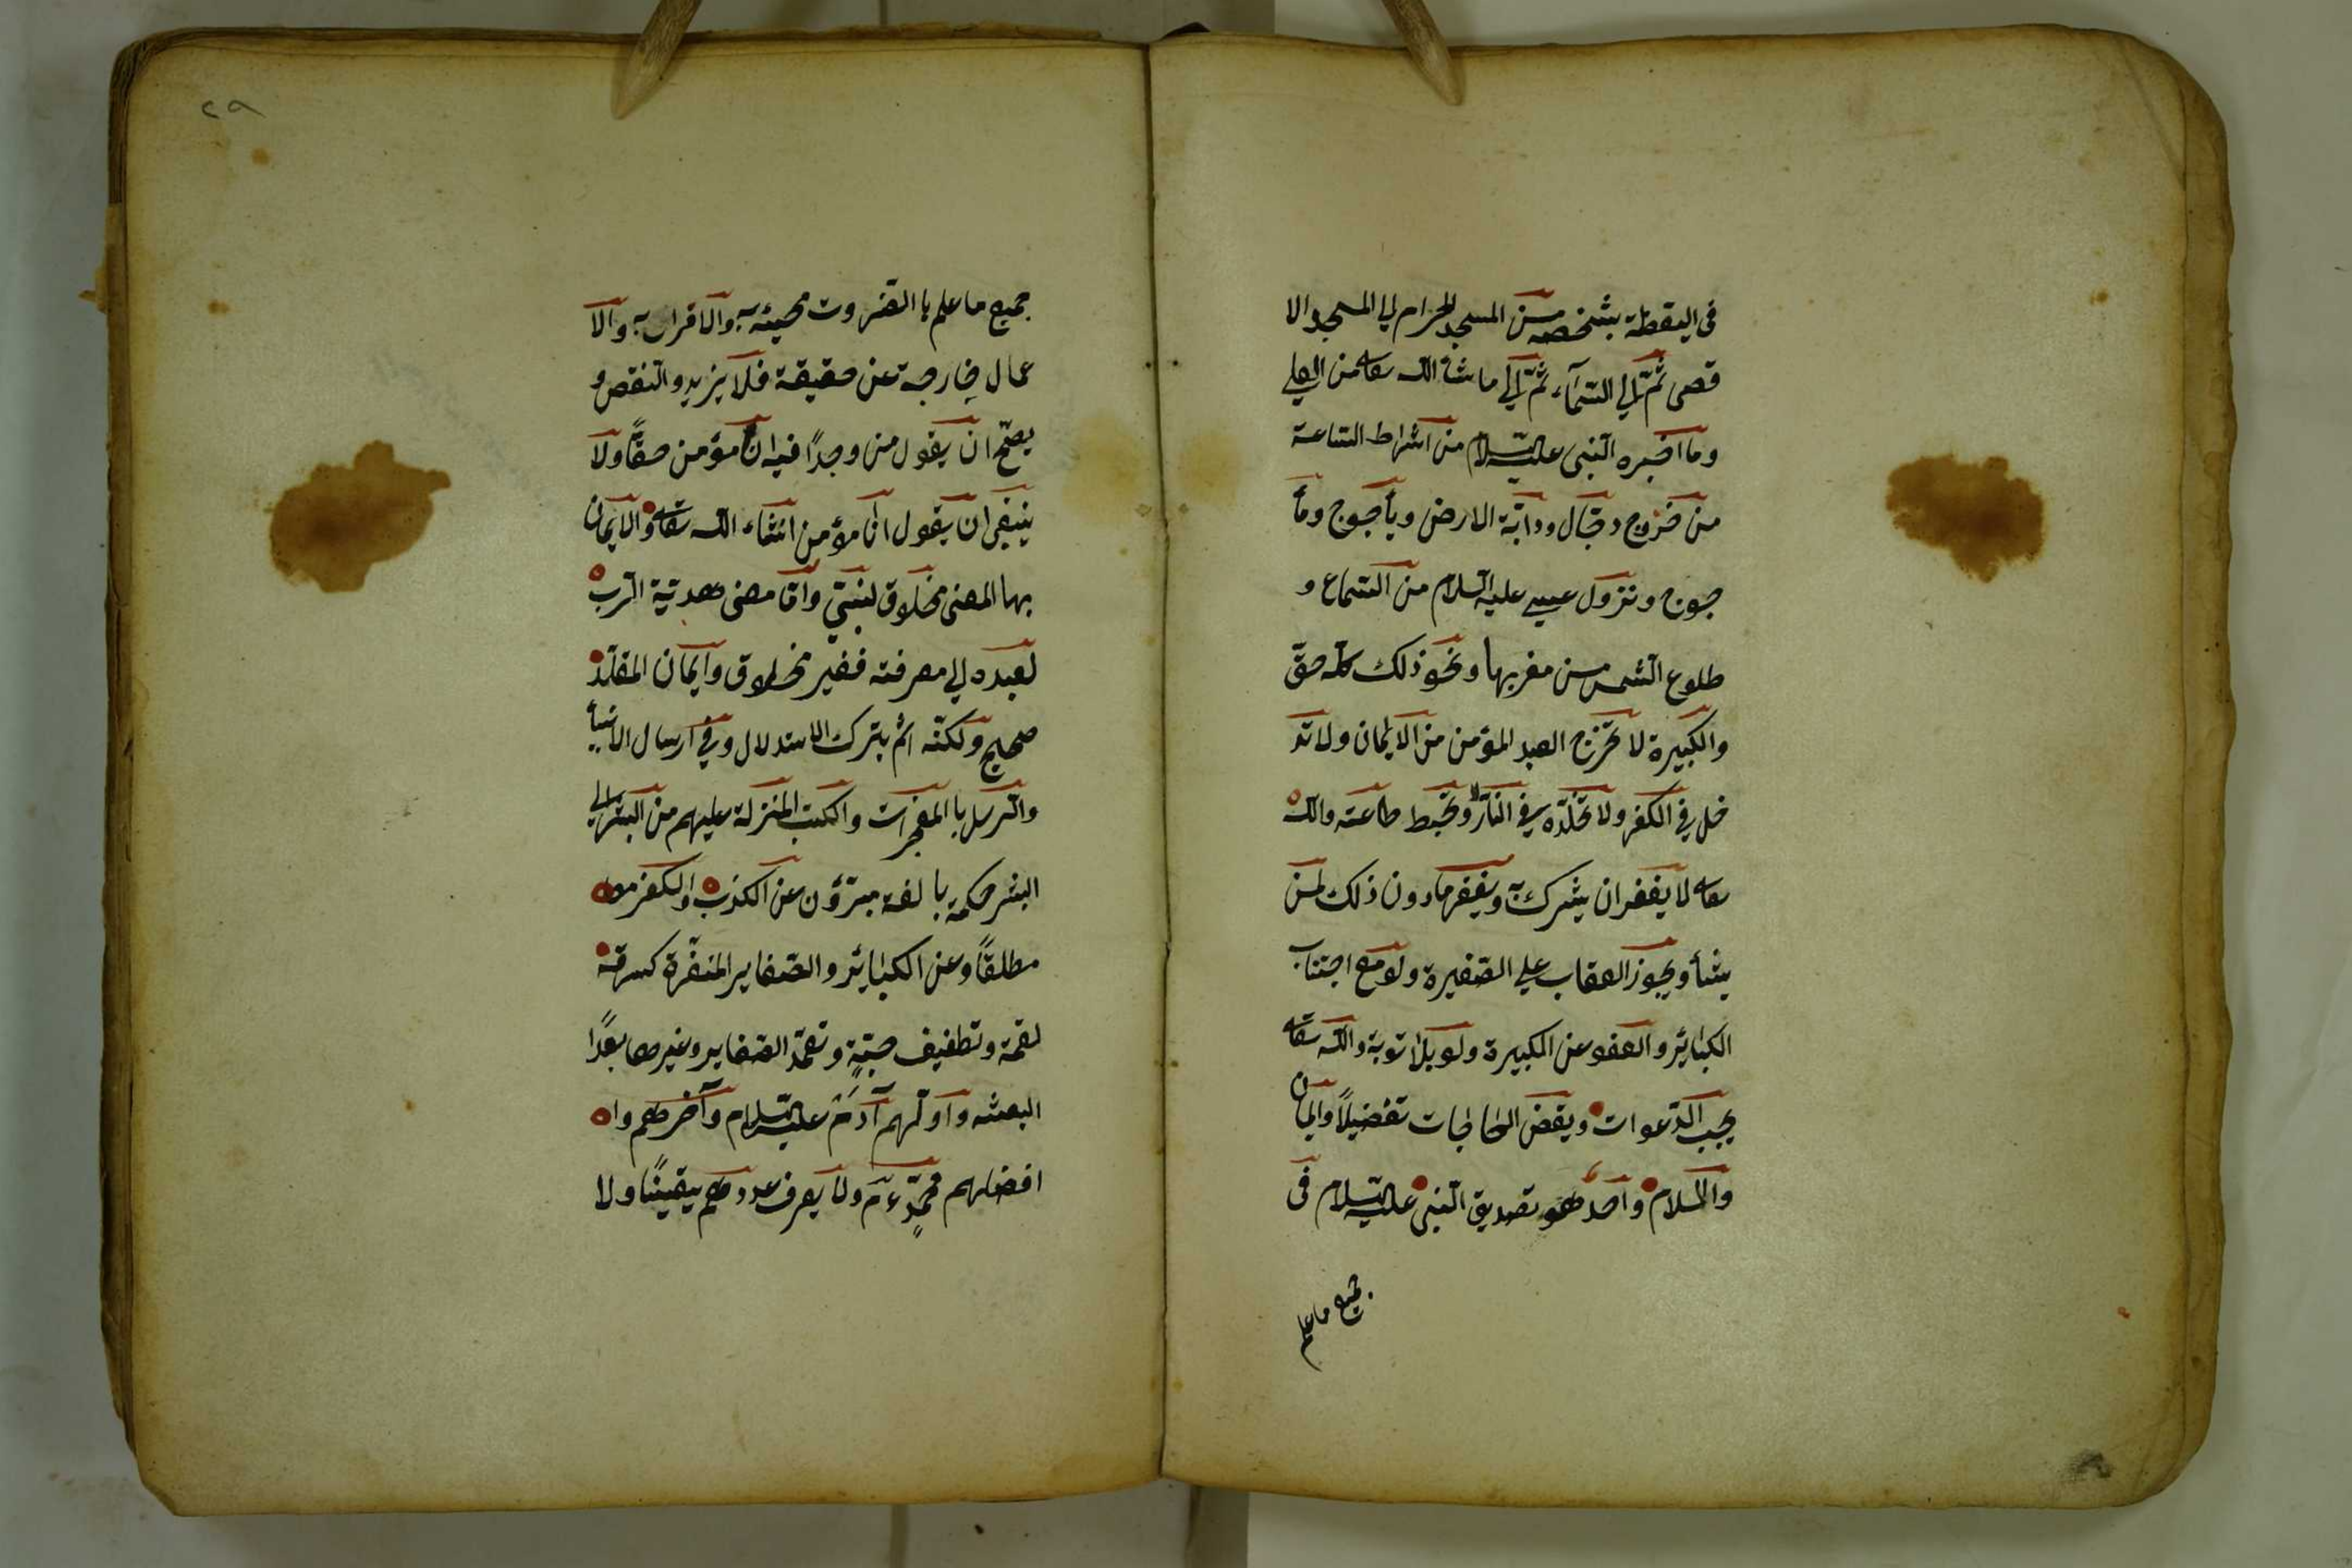 فى اليقظة بشخصه من المسجد الحرام الى المسجد الا
قصى ثمّ الى السّمآء ثمّ الى ما شأ الله تعالى من العلى
وما اخبره النّبى عليه السّلام من اشراط السّاعة
من خروج دجّال ودابّة الارض ويأجوج ومأ
جوج ونزول عيسى عليه السّلام من السّماء و
طلوع الشّمس من مغربها ونحو ذلك كلّه حقّ
والكبيرة لا تخرج العبد المؤمن من الايمان ولا تد
خل فى الكفر ولا تخلّده فى النّار ولا تحبط طاعته والله
تعالى لا يغفر ان يشرك به ويغفر ما دون ذلك لمن
يشأ ويجوز العقاب على الصّغيرة ولو مع اجتناب
الكبائر والعفو عن الكبيرة ولو بلا توبة والله تعالى
يجيب الدّعوات ويقض الحاجات تفضيلاً والايمان
والاسلام واحد هو تصديق النّبى عليه السّلام فى
جميع ما علم
٢٩
جميع ما علم با الضّرورت مجيئه به والاقرار به والا
عمال خارجة عن حقيقة فلا يزيد والنقص و
يصحّ ان يقول من وجداً فيه انا مؤمن حقّاً ولا
ينبغى ان يقول انا مؤمن انشاء الله تعالى والايمان
بها المعنى مخلاوق لنبتى وامّا معنى هدتية الرّب
لعبده الى معرفته فغير مخلاوق وايمان المقلّد
صحيح ولكنّه اثم بترك الاستدلال وفى ارسال الانبيأ
والرّسل با المعجزات والكتب المنزلة عليهم من البشر الى
البشر حكمة با لغة مبرّؤن عن الكذب والكفر
مطلقاً وعن الكبائر والصّغاير المنفّرة كسرقة
لقمة وتطفيف حبّةٍ وتعمّد الصّغاير وغيرها بعداً
البعثه واوّلهم آدم عليه السّلام وآخرهم وا
افضلهم محمّدٍ عم ولا يعرف عددهم يقيناً ولا